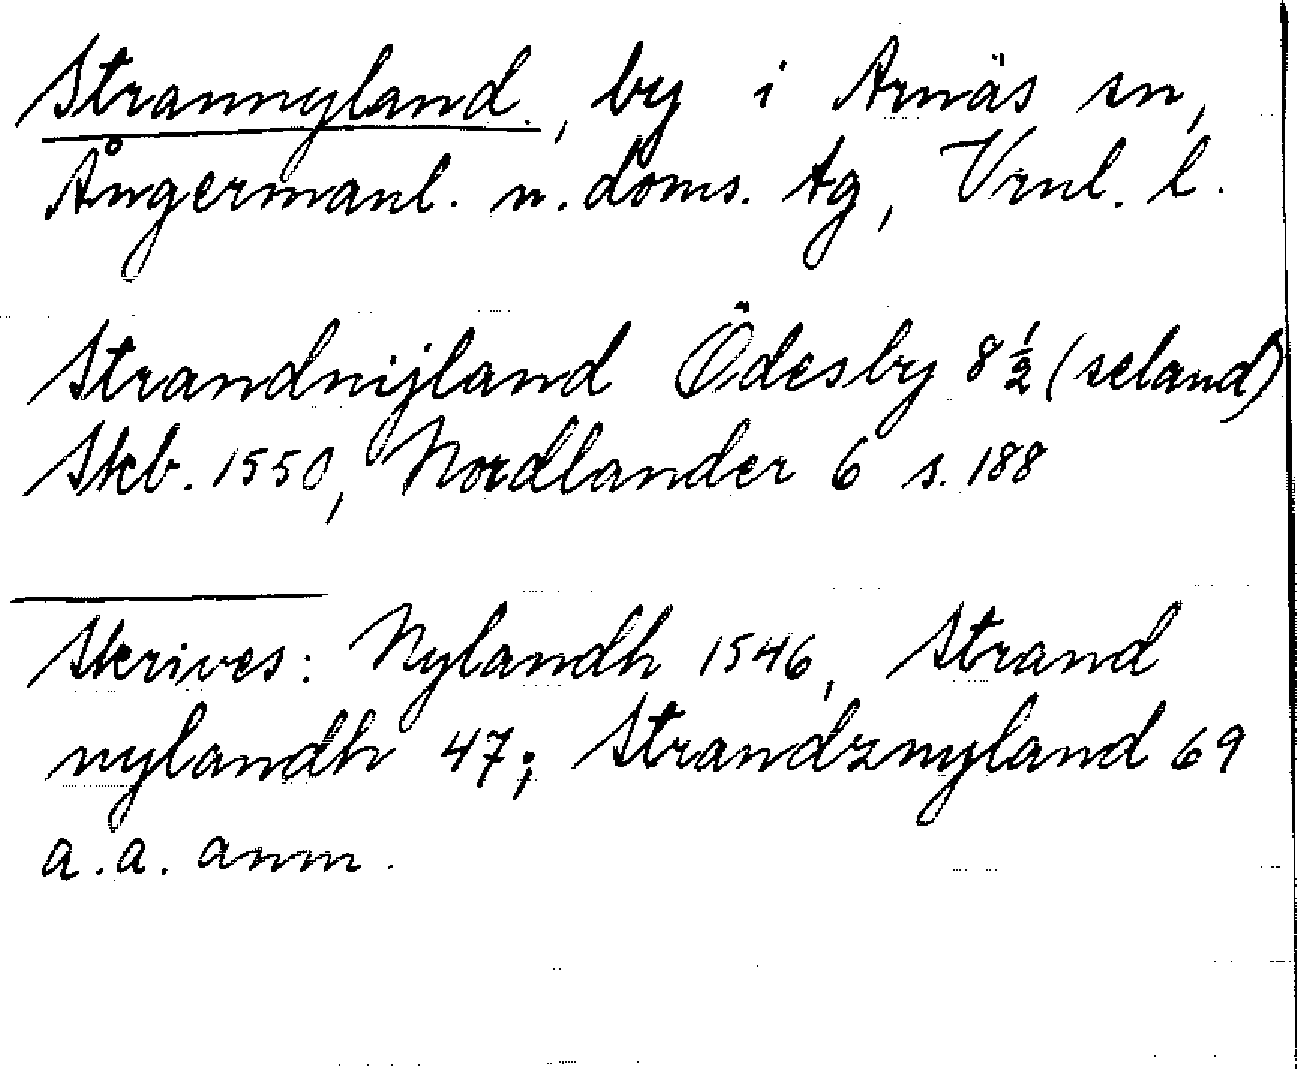 Strannyland, by i Arnäs sn,
Ångermanl. n. doms. tg, Vrnl. l.
Strandnijland Ödesby 8 ½ (seland)
Skb. 1550, Nordlander 6 s. 188
Skrives: Nylandh 1546, Strand
nylandh 47; Strandznyland 69
a. a. anm.